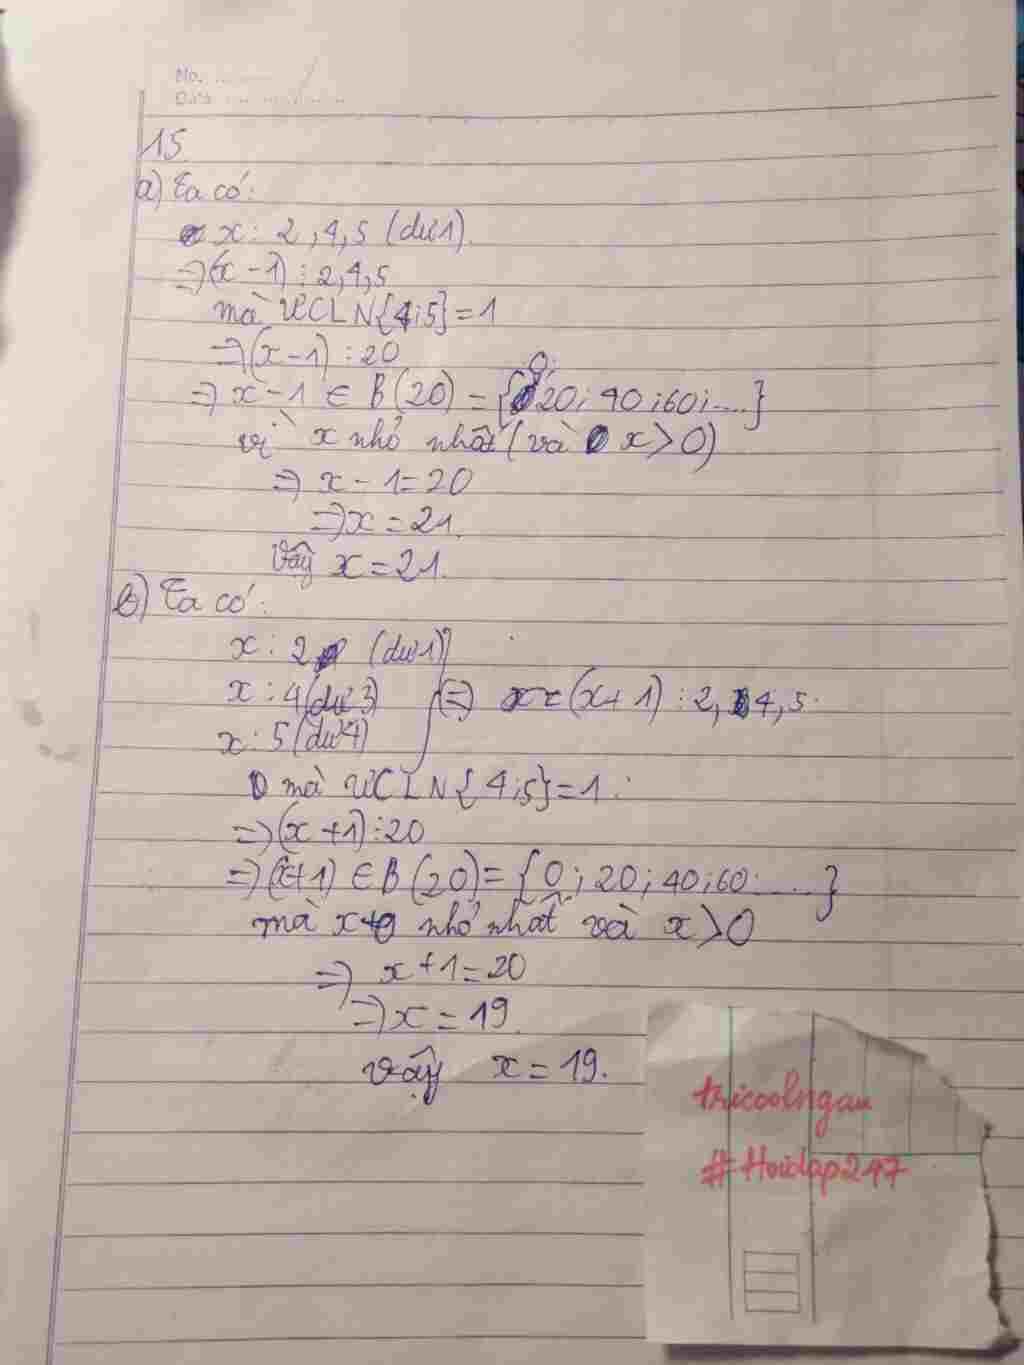 No.
Date
15
a) Ta có:
x : 2, 4, 5 (dư 1).
=> (x - 1) ⋮ 2, 4, 5
mà ƯCLN{4;5} = 1
=> (x - 1) ⋮ 20
=> x - 1 ∈ B(20) = {0; 20; 40; 60; ....}
vì x nhỏ nhất (và x > 0)
=> x - 1 = 20
=> x = 21.
Vậy x = 21.
b) Ta có:
x : 2 (dư 1)
x : 4 (dư 3) => (x + 1) ⋮ 2, 4, 5.
x : 5 (dư 4)
mà ƯCLN{4;5} = 1.
=> (x + 1) ⋮ 20
=> (x + 1) ∈ B(20) = {0; 20; 40; 60; .....}
mà x nhỏ nhất và x > 0
=> x + 1 = 20
=> x = 19.
Vậy x = 19.
tricoolngau
#Hoidap247